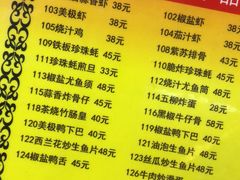 38元
103美极虾 38元
105烧汁鸡 38元
109铁板珍珠蚝 45元
111珍珠蚝煎旦 33元
113椒盐尤鱼须 48元
115蒜香炸骨仔 45元
118茶烧竹肠皇 40元
120美极鸭下巴 40元
122西兰花炒生鱼片 48元
124椒盐鸭舌 45元
102椒盐虾 38元
104茄汁虾 38元
108紫苏排骨 38元
110脆炸珍珠蚝
112
114五柳炸蛋 28元
116黑椒牛仔骨 58元
119椒盐鸭下巴 40元
121油泡生鱼片 48元
123丝瓜炒生鱼片 48元
126牛肉炒